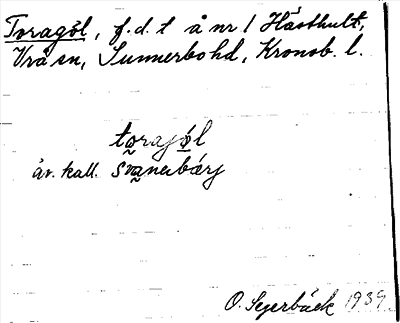 Toragöl, f.d. t å nr 1 Hästhult,
Vrå sn, Sunnerbo hd, Kronob. l.
torajöl
äv. kall. svanerbärj
O. Segerbäck 1939